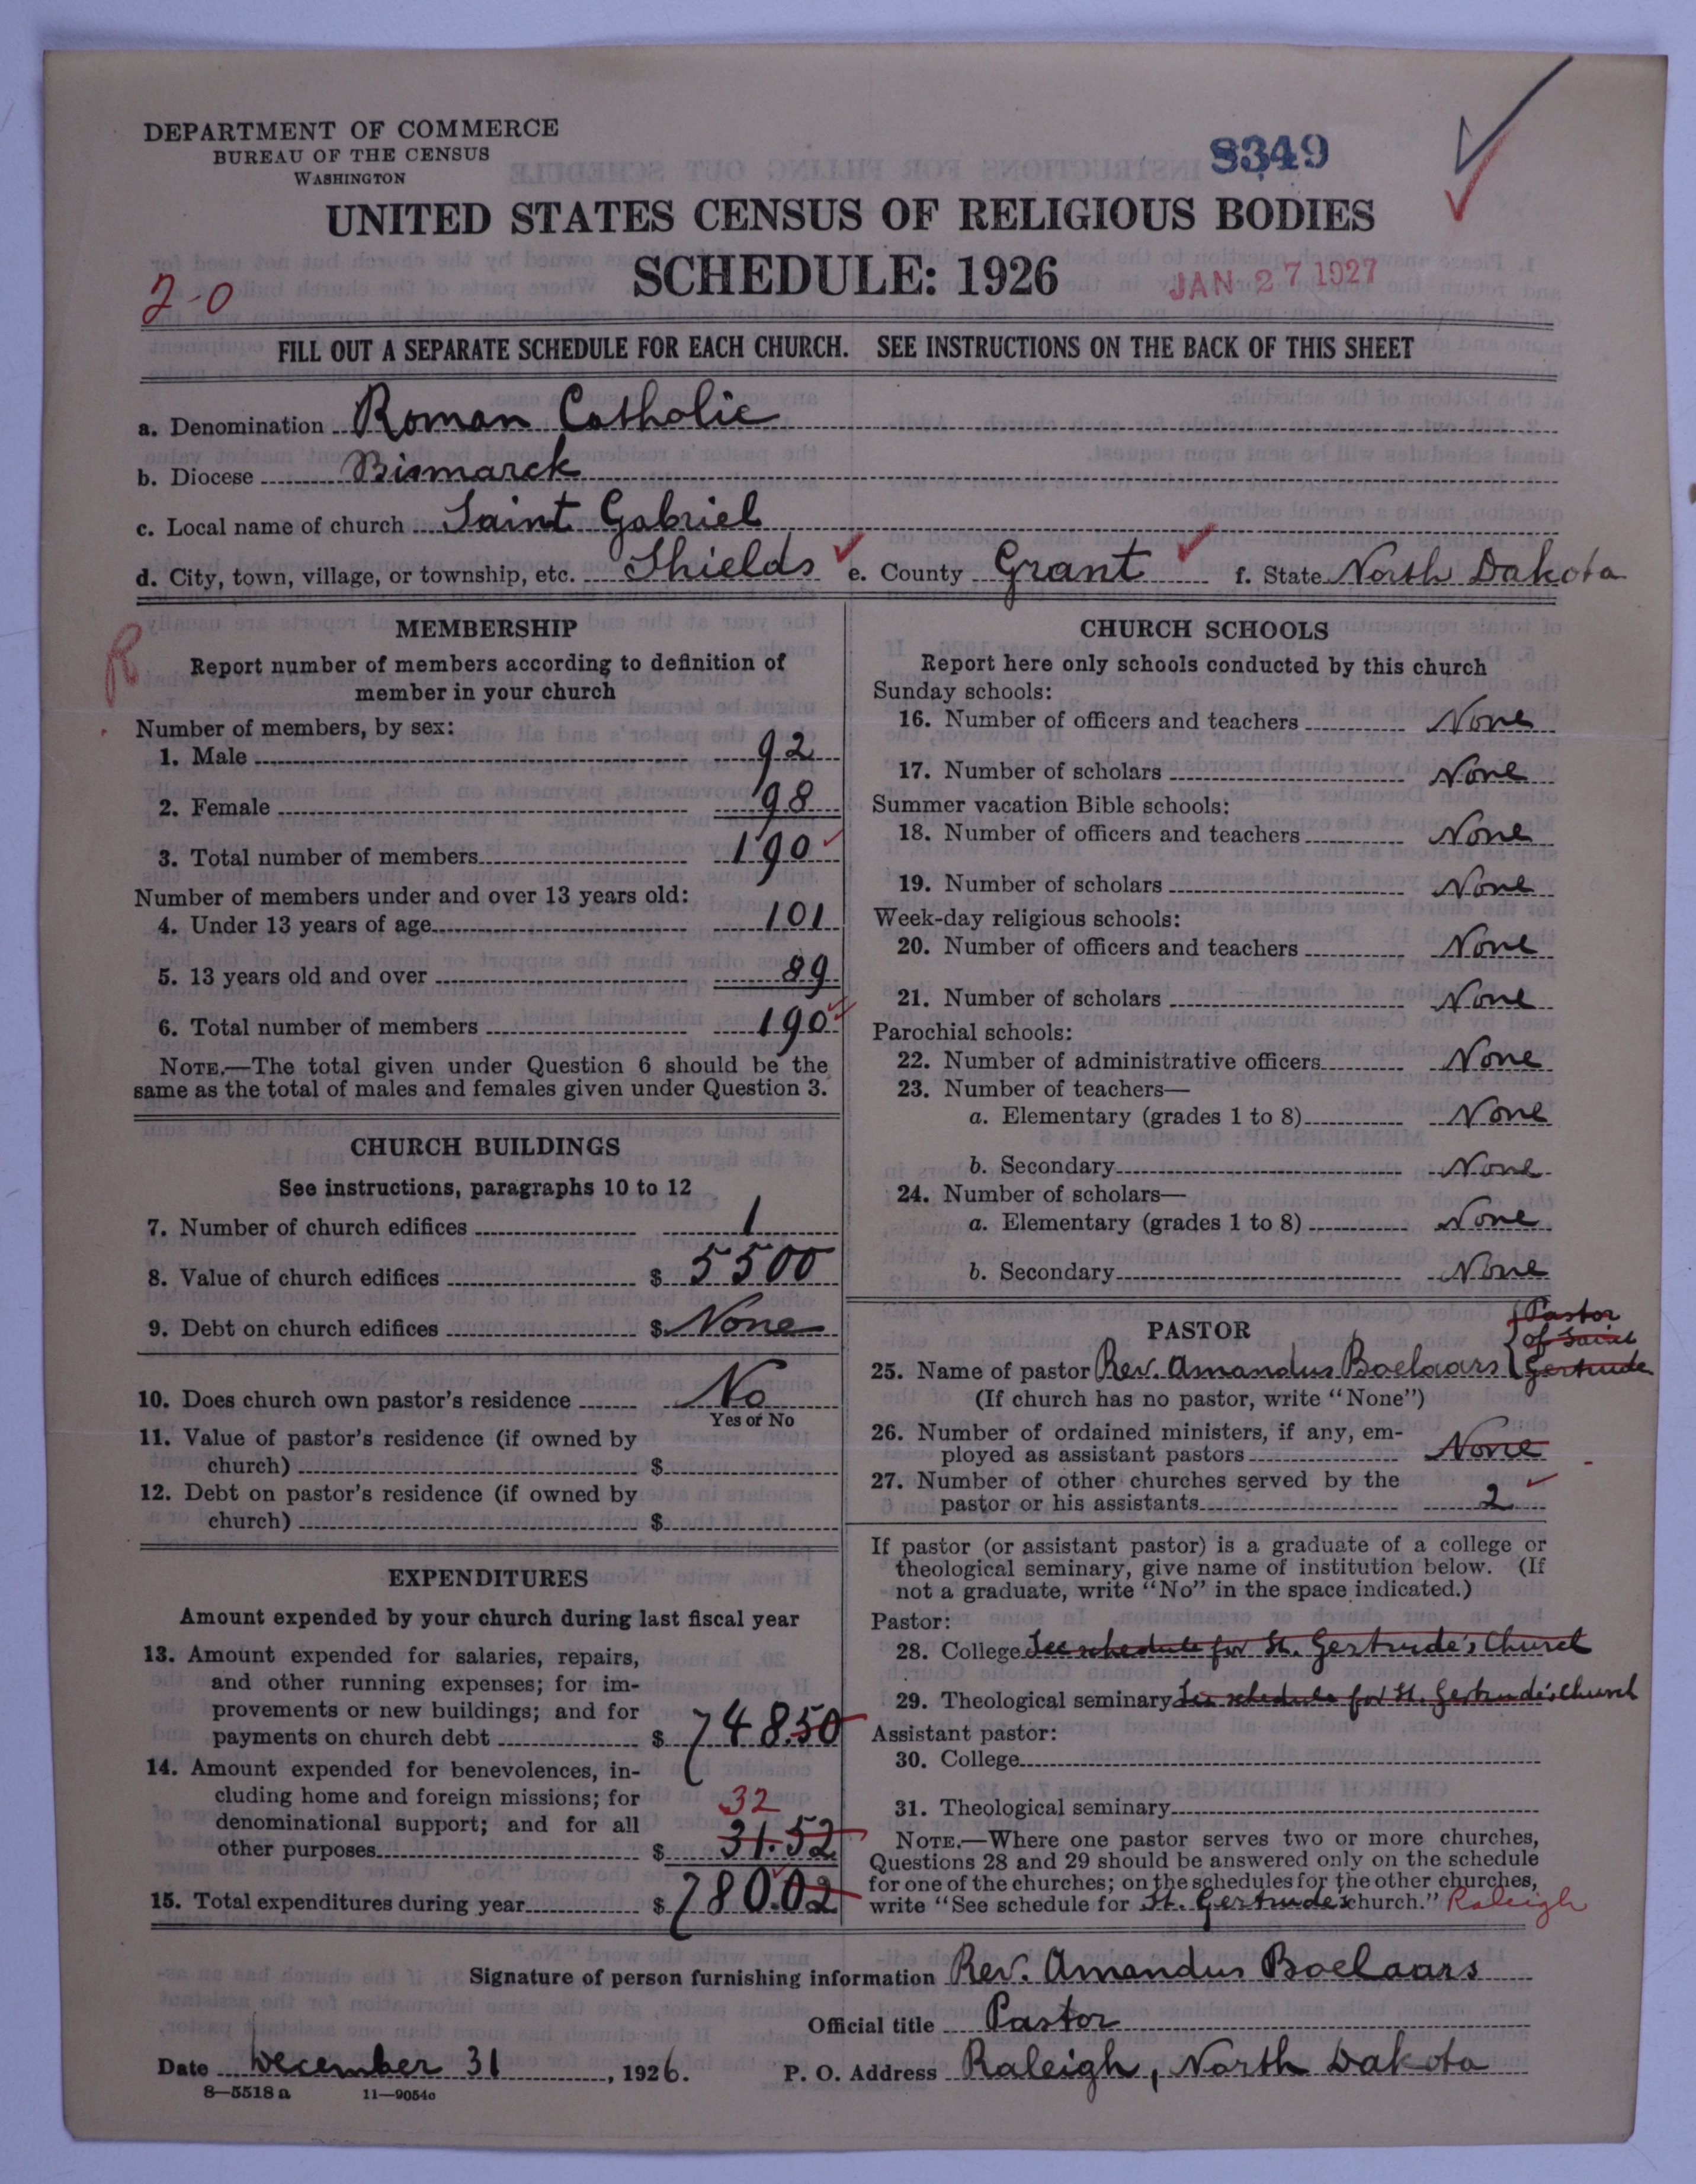 DEPARTMENT OF COMMERCE
BUREAU OF THE CENSUS
WASHINGTON
8349
UNITED STATES CENSUS OF RELIGIOUS BODIES
SCHEDULE: 1926
JAN 27 1927
2-0
FILL OUT A SEPARATE SCHEDULE FOR EACH CHURCH. SEE INSTRUCTIONS ON THE BACK OF THIS SHEET
a. Denomination Roman Catholic
b. Diocese Bismarck
c. Local name of church Saint Gabriel
d. City, town, village, or township, etc. Shields e. County Grant f. State North Dakota
R
MEMBERSHIP
Report number of members according to definition of
member in your church
Number of members, by sex:
1. Male 92
2. Female 98
3. Total number of members 190
Number of members under and over 13 years old:
4. Under 13 years of age 101
5. 13 years old and over 89
6. Total number of members 190
NOTE.—The total given under Question 6 should be the
same as the total of males and females given under Question 3.
CHURCH BUILDINGS
See instructions, paragraphs 10 to 12
7. Number of church edifices 1
8. Value of church edifices $ 5500
9. Debt on church edifices $ None
10. Does church own pastor's residence No
Yes or No
11. Value of pastor's residence (if owned by
church) $
12. Debt on pastor's residence (if owned by
church) $
EXPENDITURES
Amount expended by your church during last fiscal year
13. Amount expended for salaries, repairs,
and other running expenses; for im-
provements or new buildings; and for
payments on church debt $ 748.50
14. Amount expended for benevolences, in-
cluding home and foreign missions; for
denominational support; and for all
32
other purposes $ 31.52
15. Total expenditures during year $ 780.02
CHURCH SCHOOLS
Report here only schools conducted by this church
Sunday schools:
16. Number of officers and teachers None
17. Number of scholars None
Summer vacation Bible schools:
18. Number of officers and teachers None
19. Number of scholars None
Week-day religious schools:
20. Number of officers and teachers None
21. Number of scholars None
Parochial schools:
22. Number of administrative officers None
23. Number of teachers—
a. Elementary (grades 1 to 8) None
b. Secondary None
24. Number of scholars—
a. Elementary (grades 1 to 8) None
b. Secondary None
PASTOR
Pastor
of Saint
Gertrude
25. Name of pastor Rev. Amandus Boelaars
(If church has no pastor, write "None")
26. Number of ordained ministers, if any, em-
ployed as assistant pastors None
27. Number of other churches served by the
pastor or his assistants 2
If pastor (or assistant pastor) is a graduate of a college or
theological seminary, give name of institution below. (If
not a graduate, write "No" in the space indicated.)
Pastor:
28. College See schedule for St. Gertrude's Church
29. Theological seminary See schedule for St. Gertrude's Church
Assistant pastor:
30. College
31. Theological seminary
NOTE.—Where one pastor serves two or more churches,
Questions 28 and 29 should be answered only on the schedule
for one of the churches; on the schedules for the other churches,
write "See schedule for St. Gertrude's church." Raleigh
Signature of person furnishing information Rev. Amandus Boelaars
Official title Pastor
Date December 31, 1926. P. O. Address Raleigh, North Dakota
8—5518 a 11—9054c